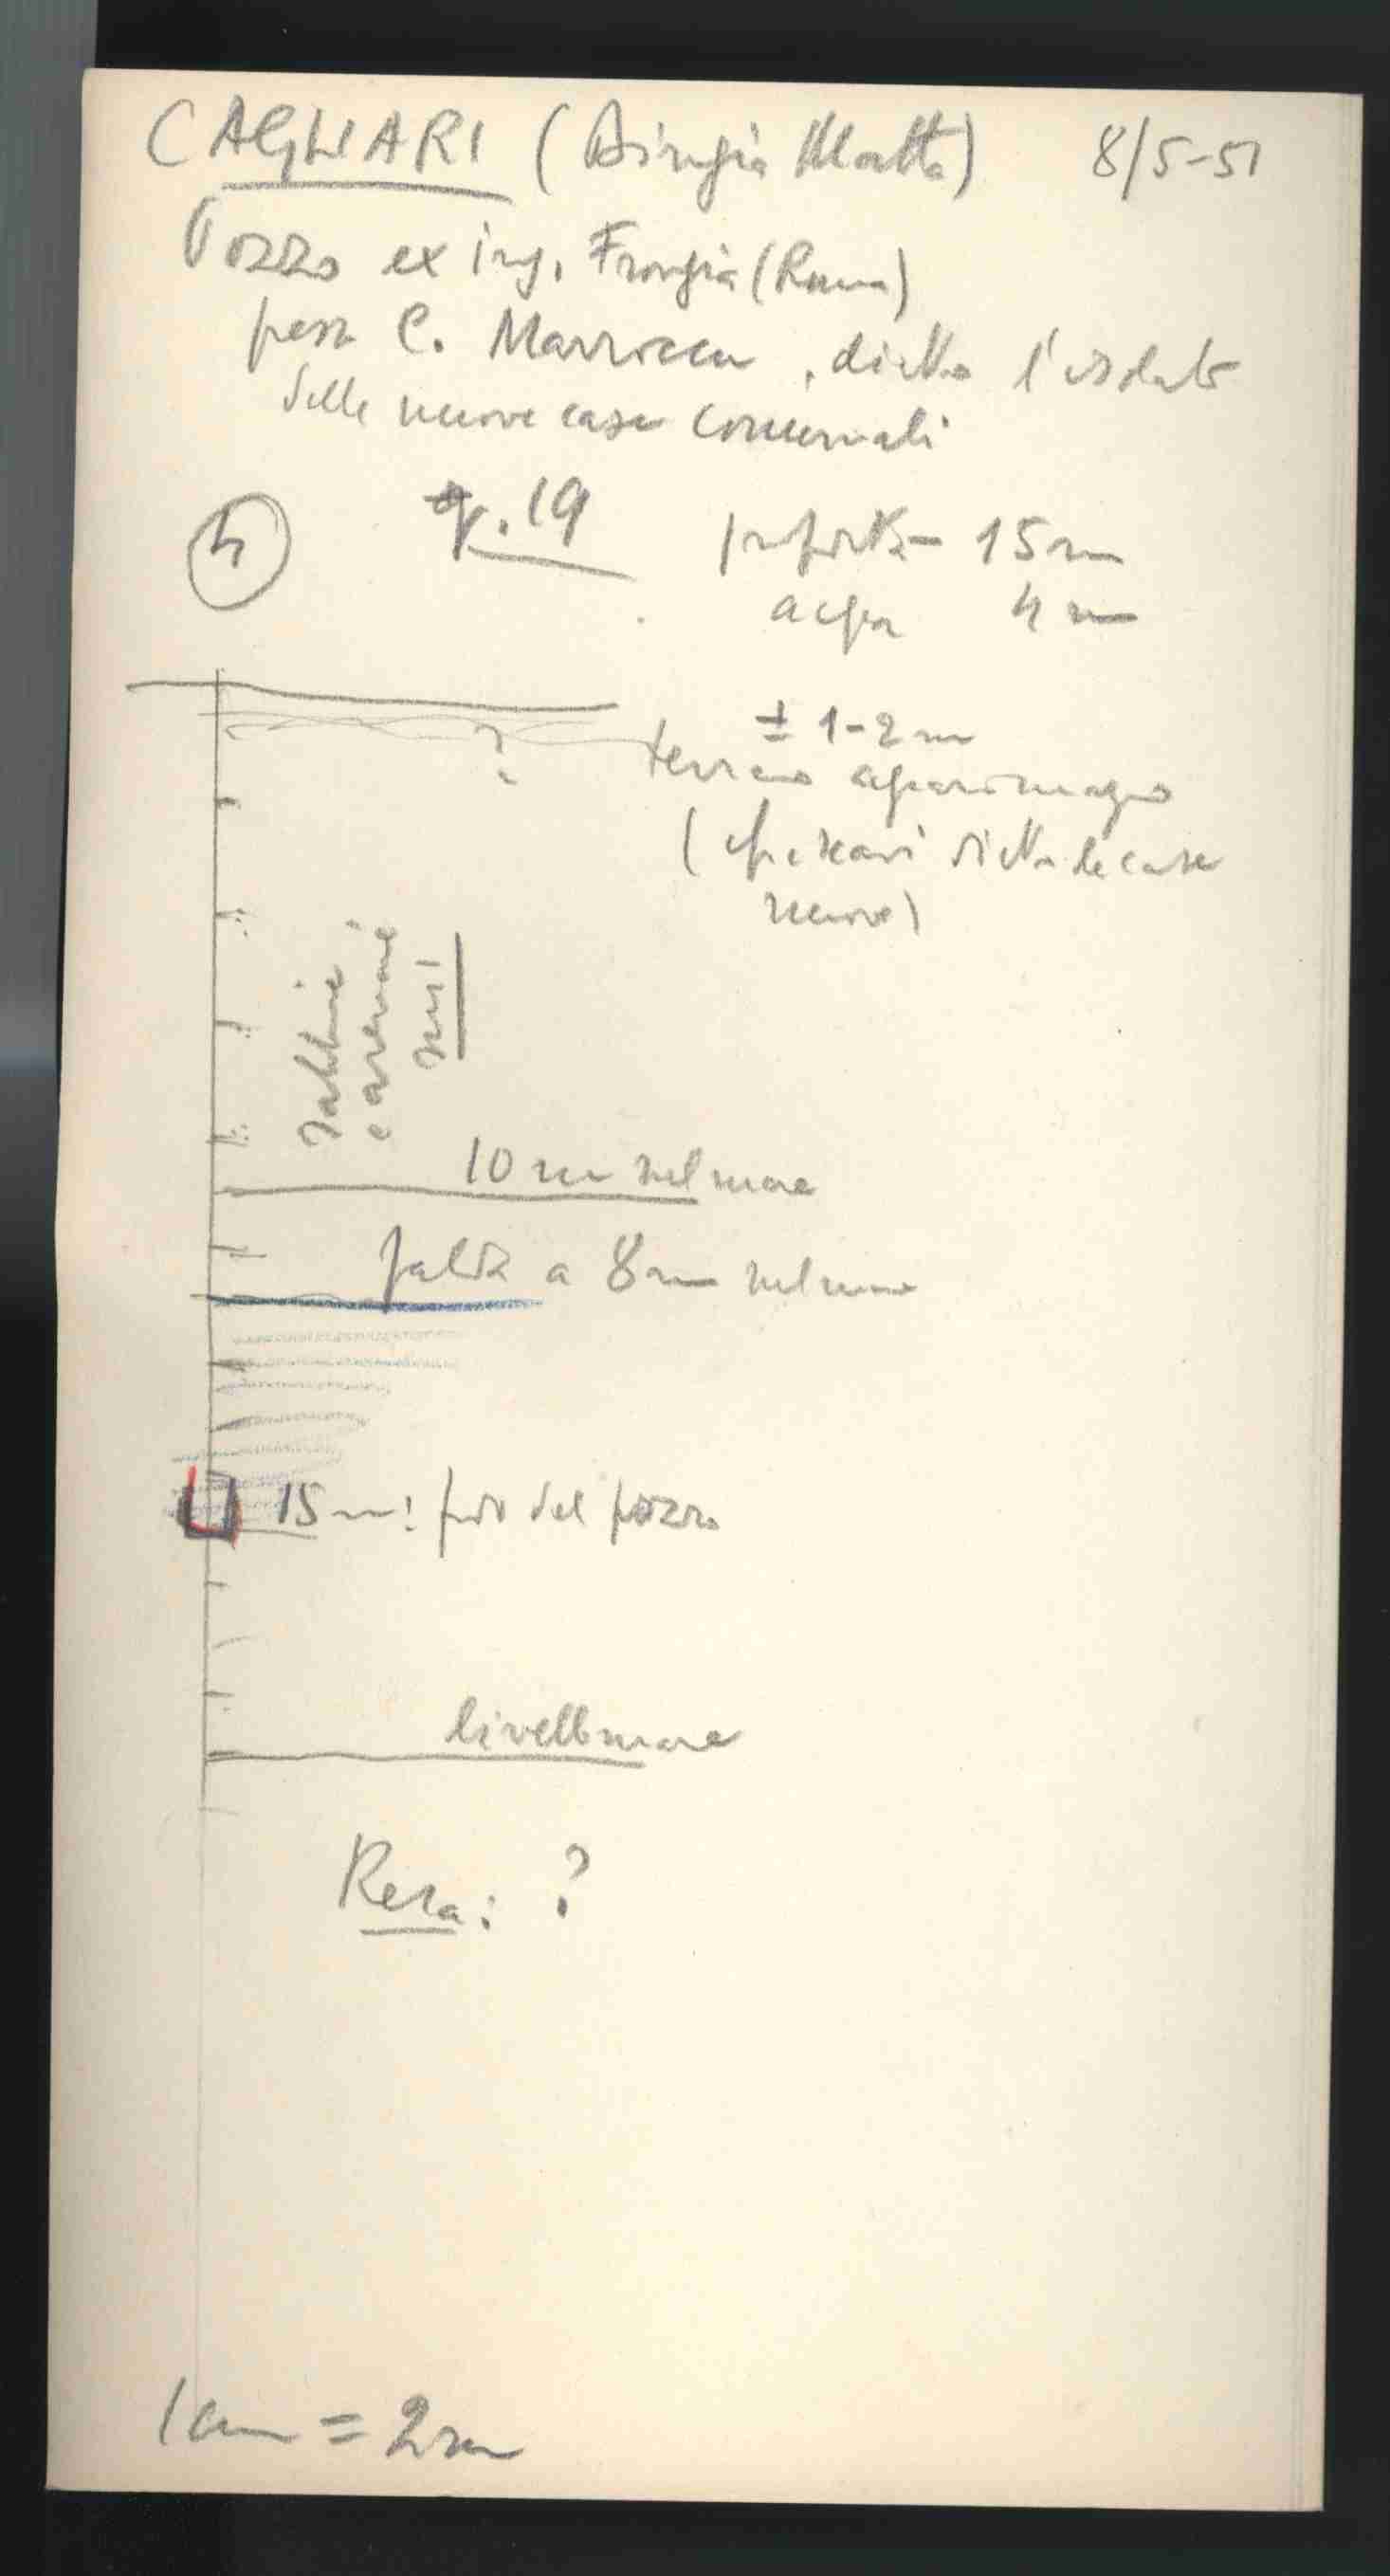 CAGLIARI (Bingia Matta) 8/5-51
Pozzo ex ing. Frongia (Roma)
C. Marrocu, dietro l'isolato
delle nuove case comunali
4
q. 19
profondità 15 m
acqua 4 m
± 1-2 m
terreno
?
( scavi dietro le case
nuove)
sabbie
e arenarie
10 m sul mare
falda a 8 m sul mare
15 m: fondo del pozzo
livello mare
Resa: ?
1 cm = 2 m